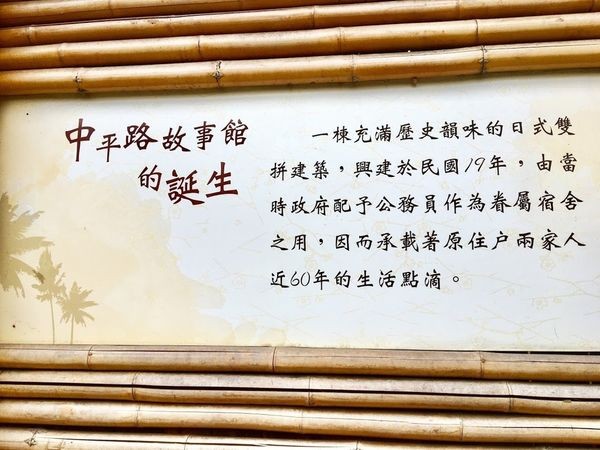 中平路故事館
的誕生
一棟充滿歷史韻味的日式雙
拼建築，興建於民國19年，由當
時政府配予公務員作為眷屬宿舍
之用，因而承載著原住户兩家人
近60年的生活點滴。